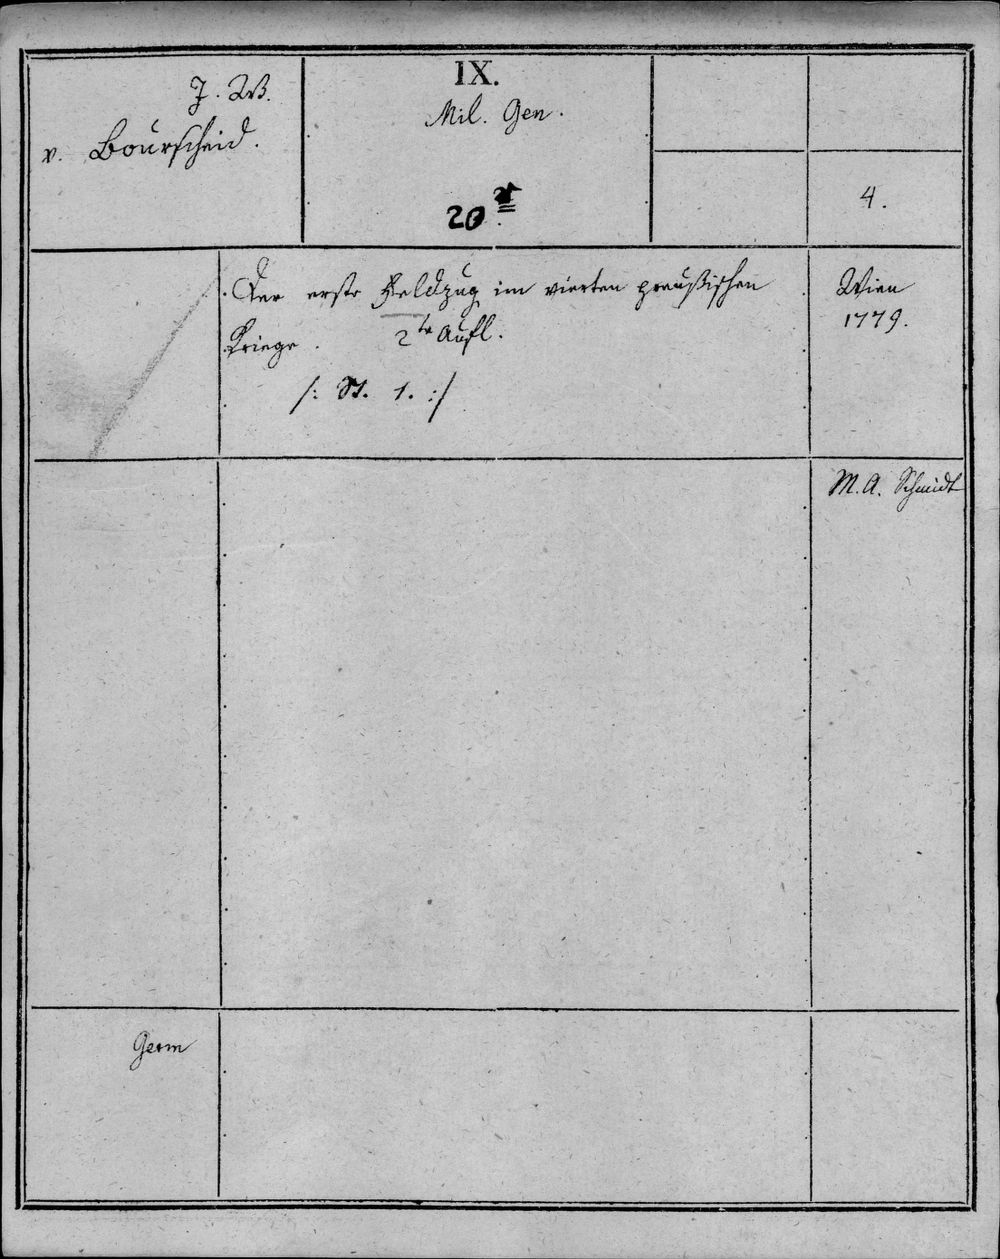 J. W.
v. Bourscheid.
IX.
Mil. Gen.
20
4.
Der erste Feldzug im vierten preußischen
Kriege. 2te Aufl.
/: St. 1. :/
Wien
1779.
M. A. Schmidt
Germ